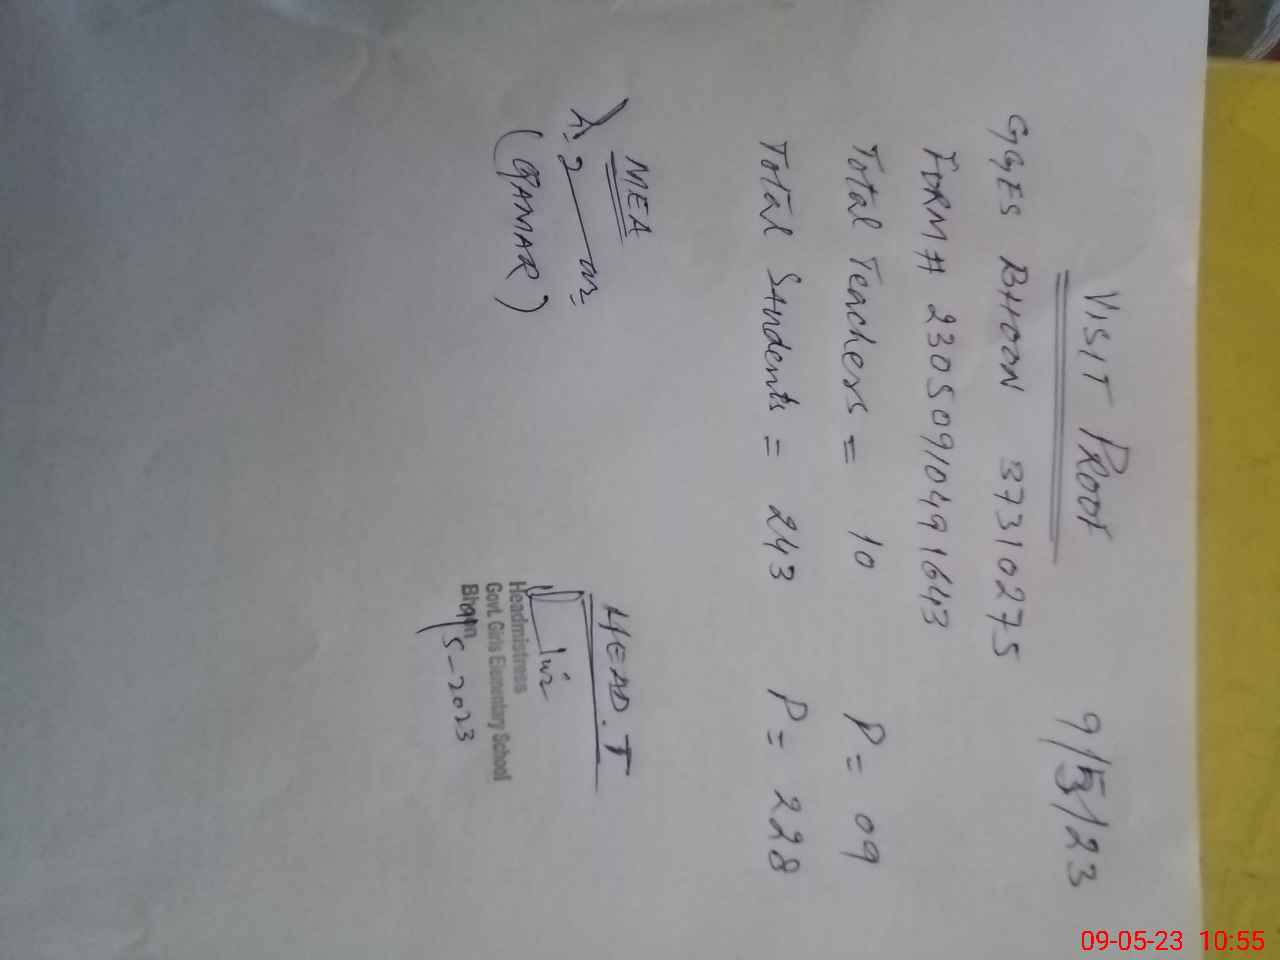 VISIT PROOF 9/5/23
GGES BHOON 37310275
FORM# 2305091049 1643
Total Teachers = 10 P = 09
Total Students = 243 P = 228
MEA
(QAMAR)
HEAD.T
Headmistress
Govt. Girls Elementary School
Bhoon
9/5-2023
09-05-23 10:55